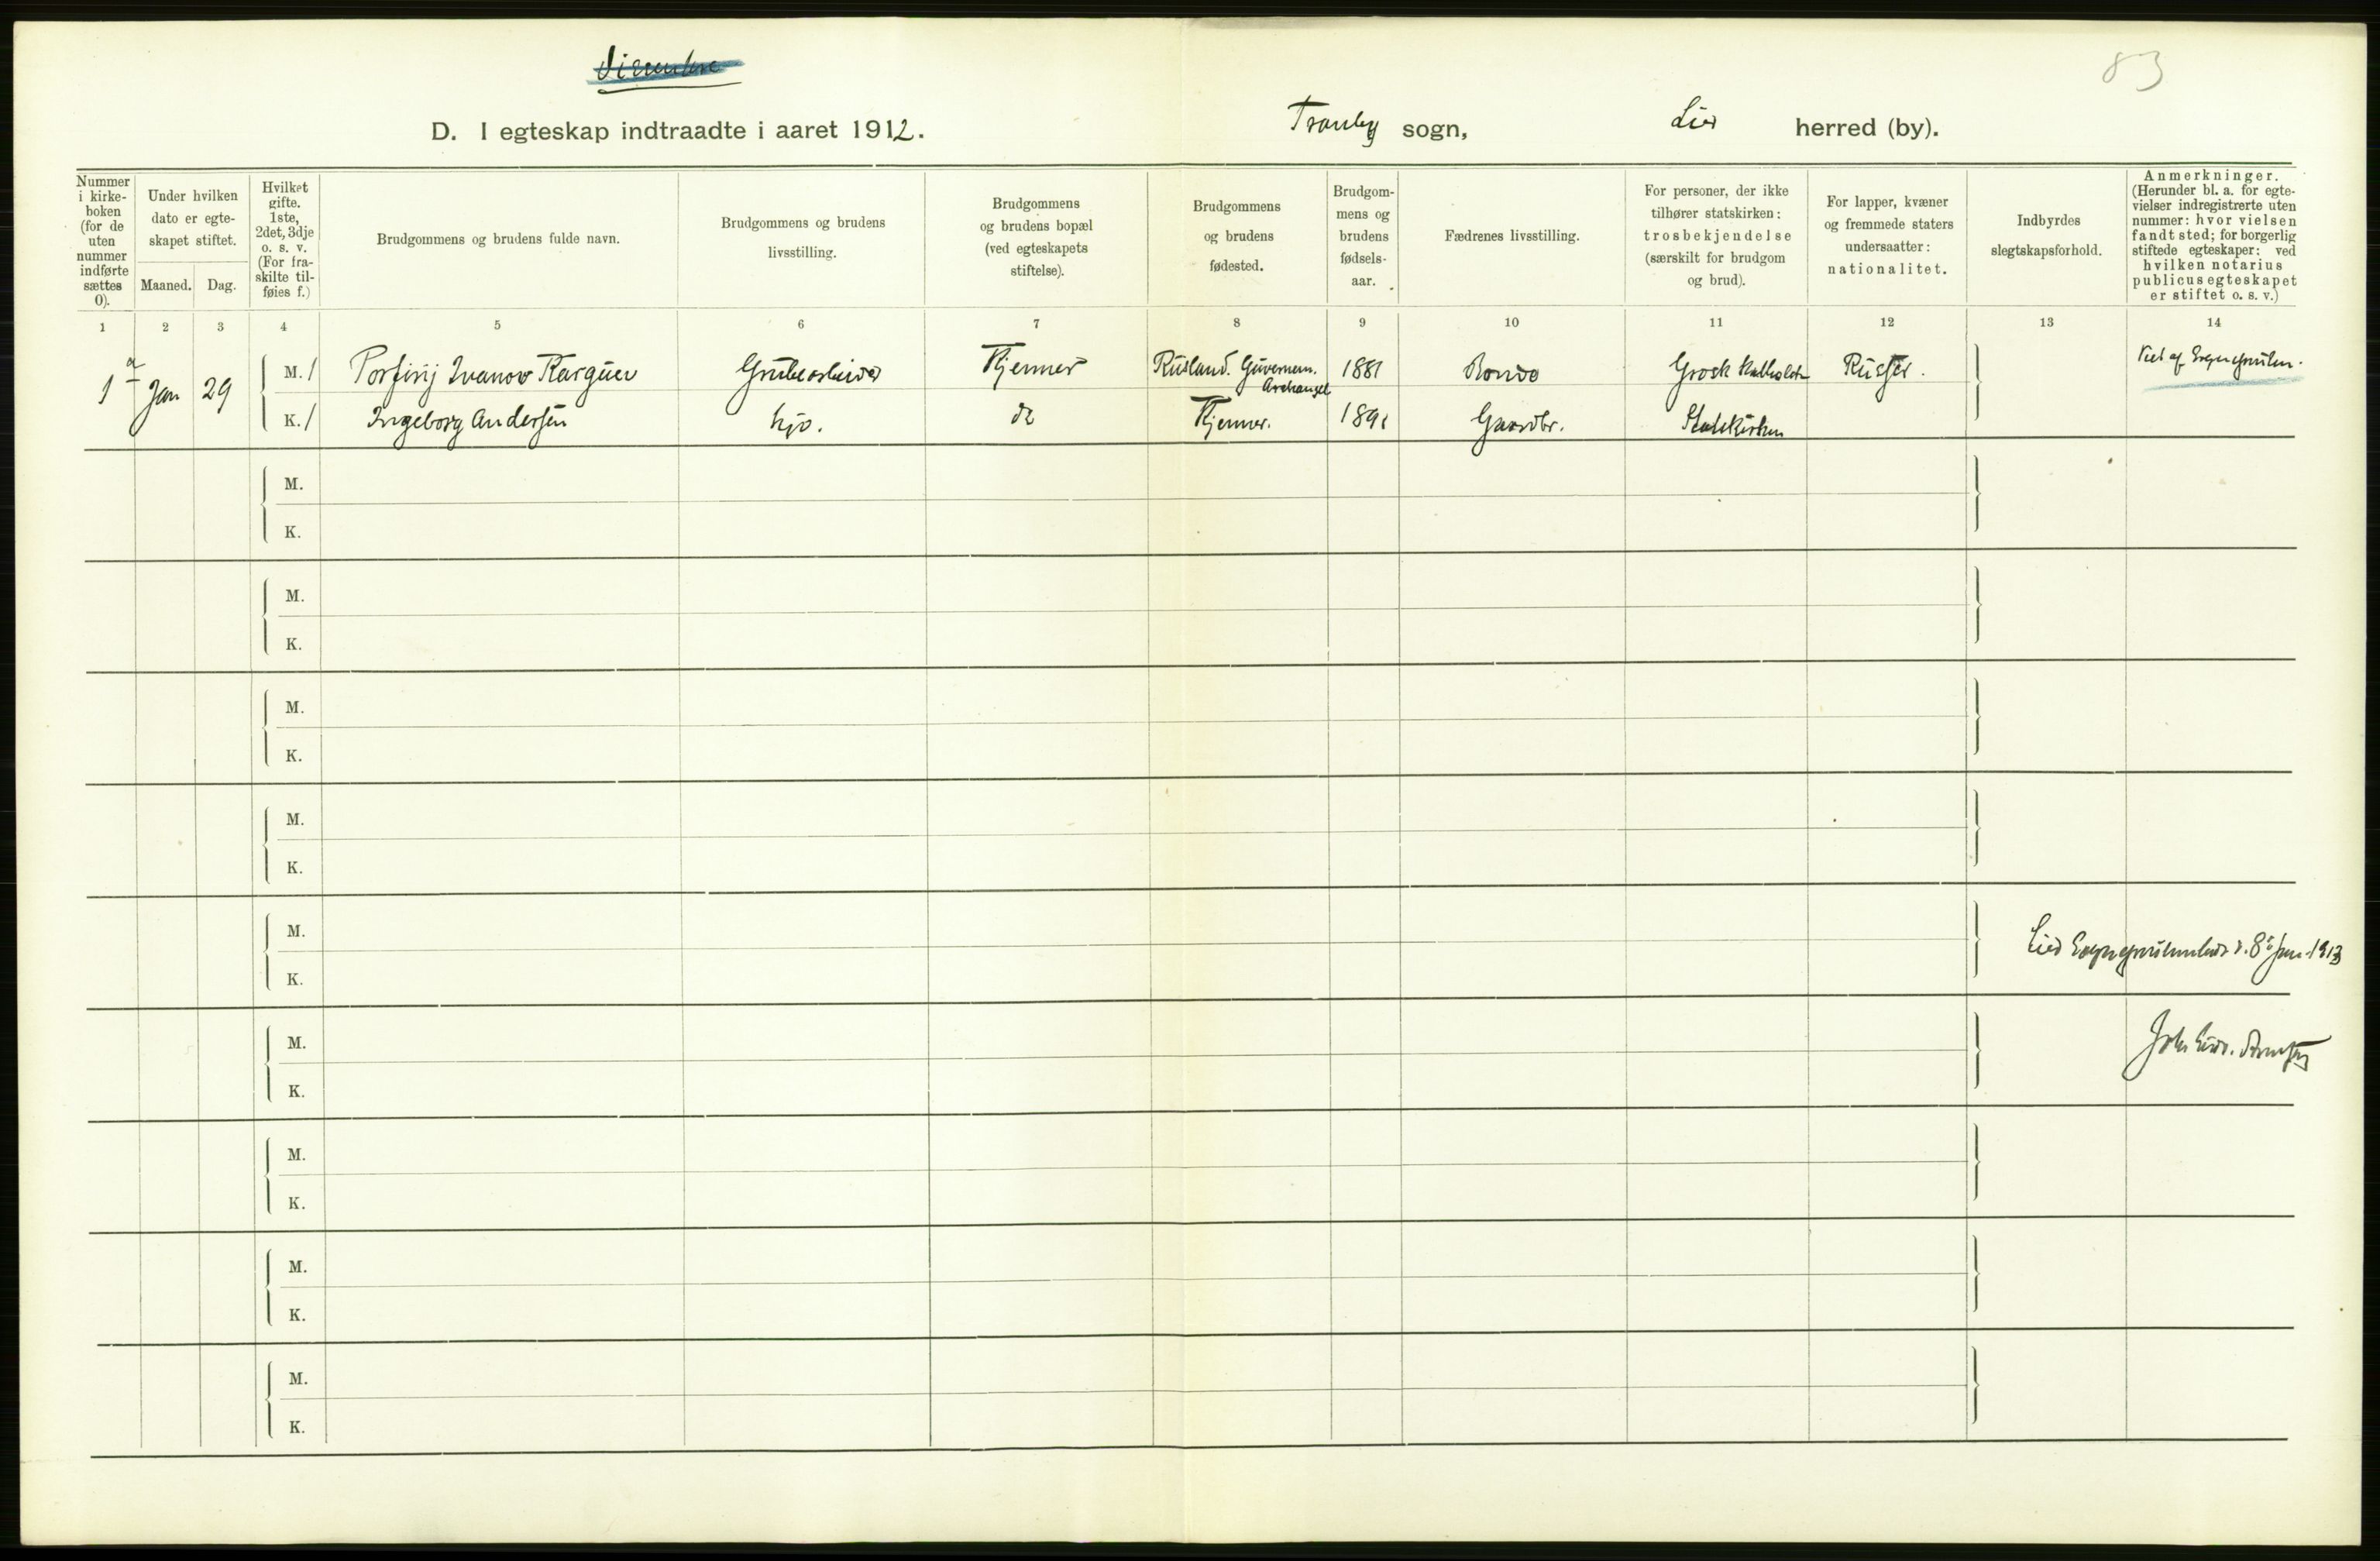 83
D. I egteskap indtraadte i aaret 1912.
Tranby sogn,
Lier herred (by).
Nummer i kirke-boken (for de uten nummer indførte sættes 0).
Under hvilken dato er egte-skapet stiftet.
Maaned.
Dag.
Hvilket gifte. 1ste, 2det, 3dje o. s. v. (For fra-skilte til-føies f.)
Brudgommens og brudens fulde navn.
Brudgommens og brudens livsstilling.
Brudgommens og brudens bopæl (ved egteskapets stiftelse).
Brudgommens og brudens fødested.
Brudgom-mens og brudens fødsels-aar.
Fædrenes livsstilling.
For personer, der ikke tilhører statskirken: trosbekjendelse (særskilt for brudgom og brud).
For lapper, kvæner og fremmede staters undersaatter: nationalitet.
Indbyrdes slegtskapsforhold.
Anmerkninger. (Herunder bl. a. for egte-vielser indregistrerte uten nummer: hvor vielsen fandt sted; for borgerlig stiftede egteskaper: ved hvilken notarius publicus egteskapet er stiftet o. s. v.)
1 2 3 4 5 6 7 8 9 10 11 12 13 14
1 a Jan 29 M. 1 Porfirij Ivanov Karguev Grubearbeider Kjenner Rusland. Guvernem. Archangel 1881 Bonde Græsk Katholsk Russer.
K. 1 Ingeborg Andersen hjv. do Kjenner. 1891 Gaardbr. Statskirken
M.
K.
M.
K.
M.
K.
M.
K.
M.
K.
Lier 8 Jan. 1913
M.
K.
M.
K.
M.
K.
M.
K.